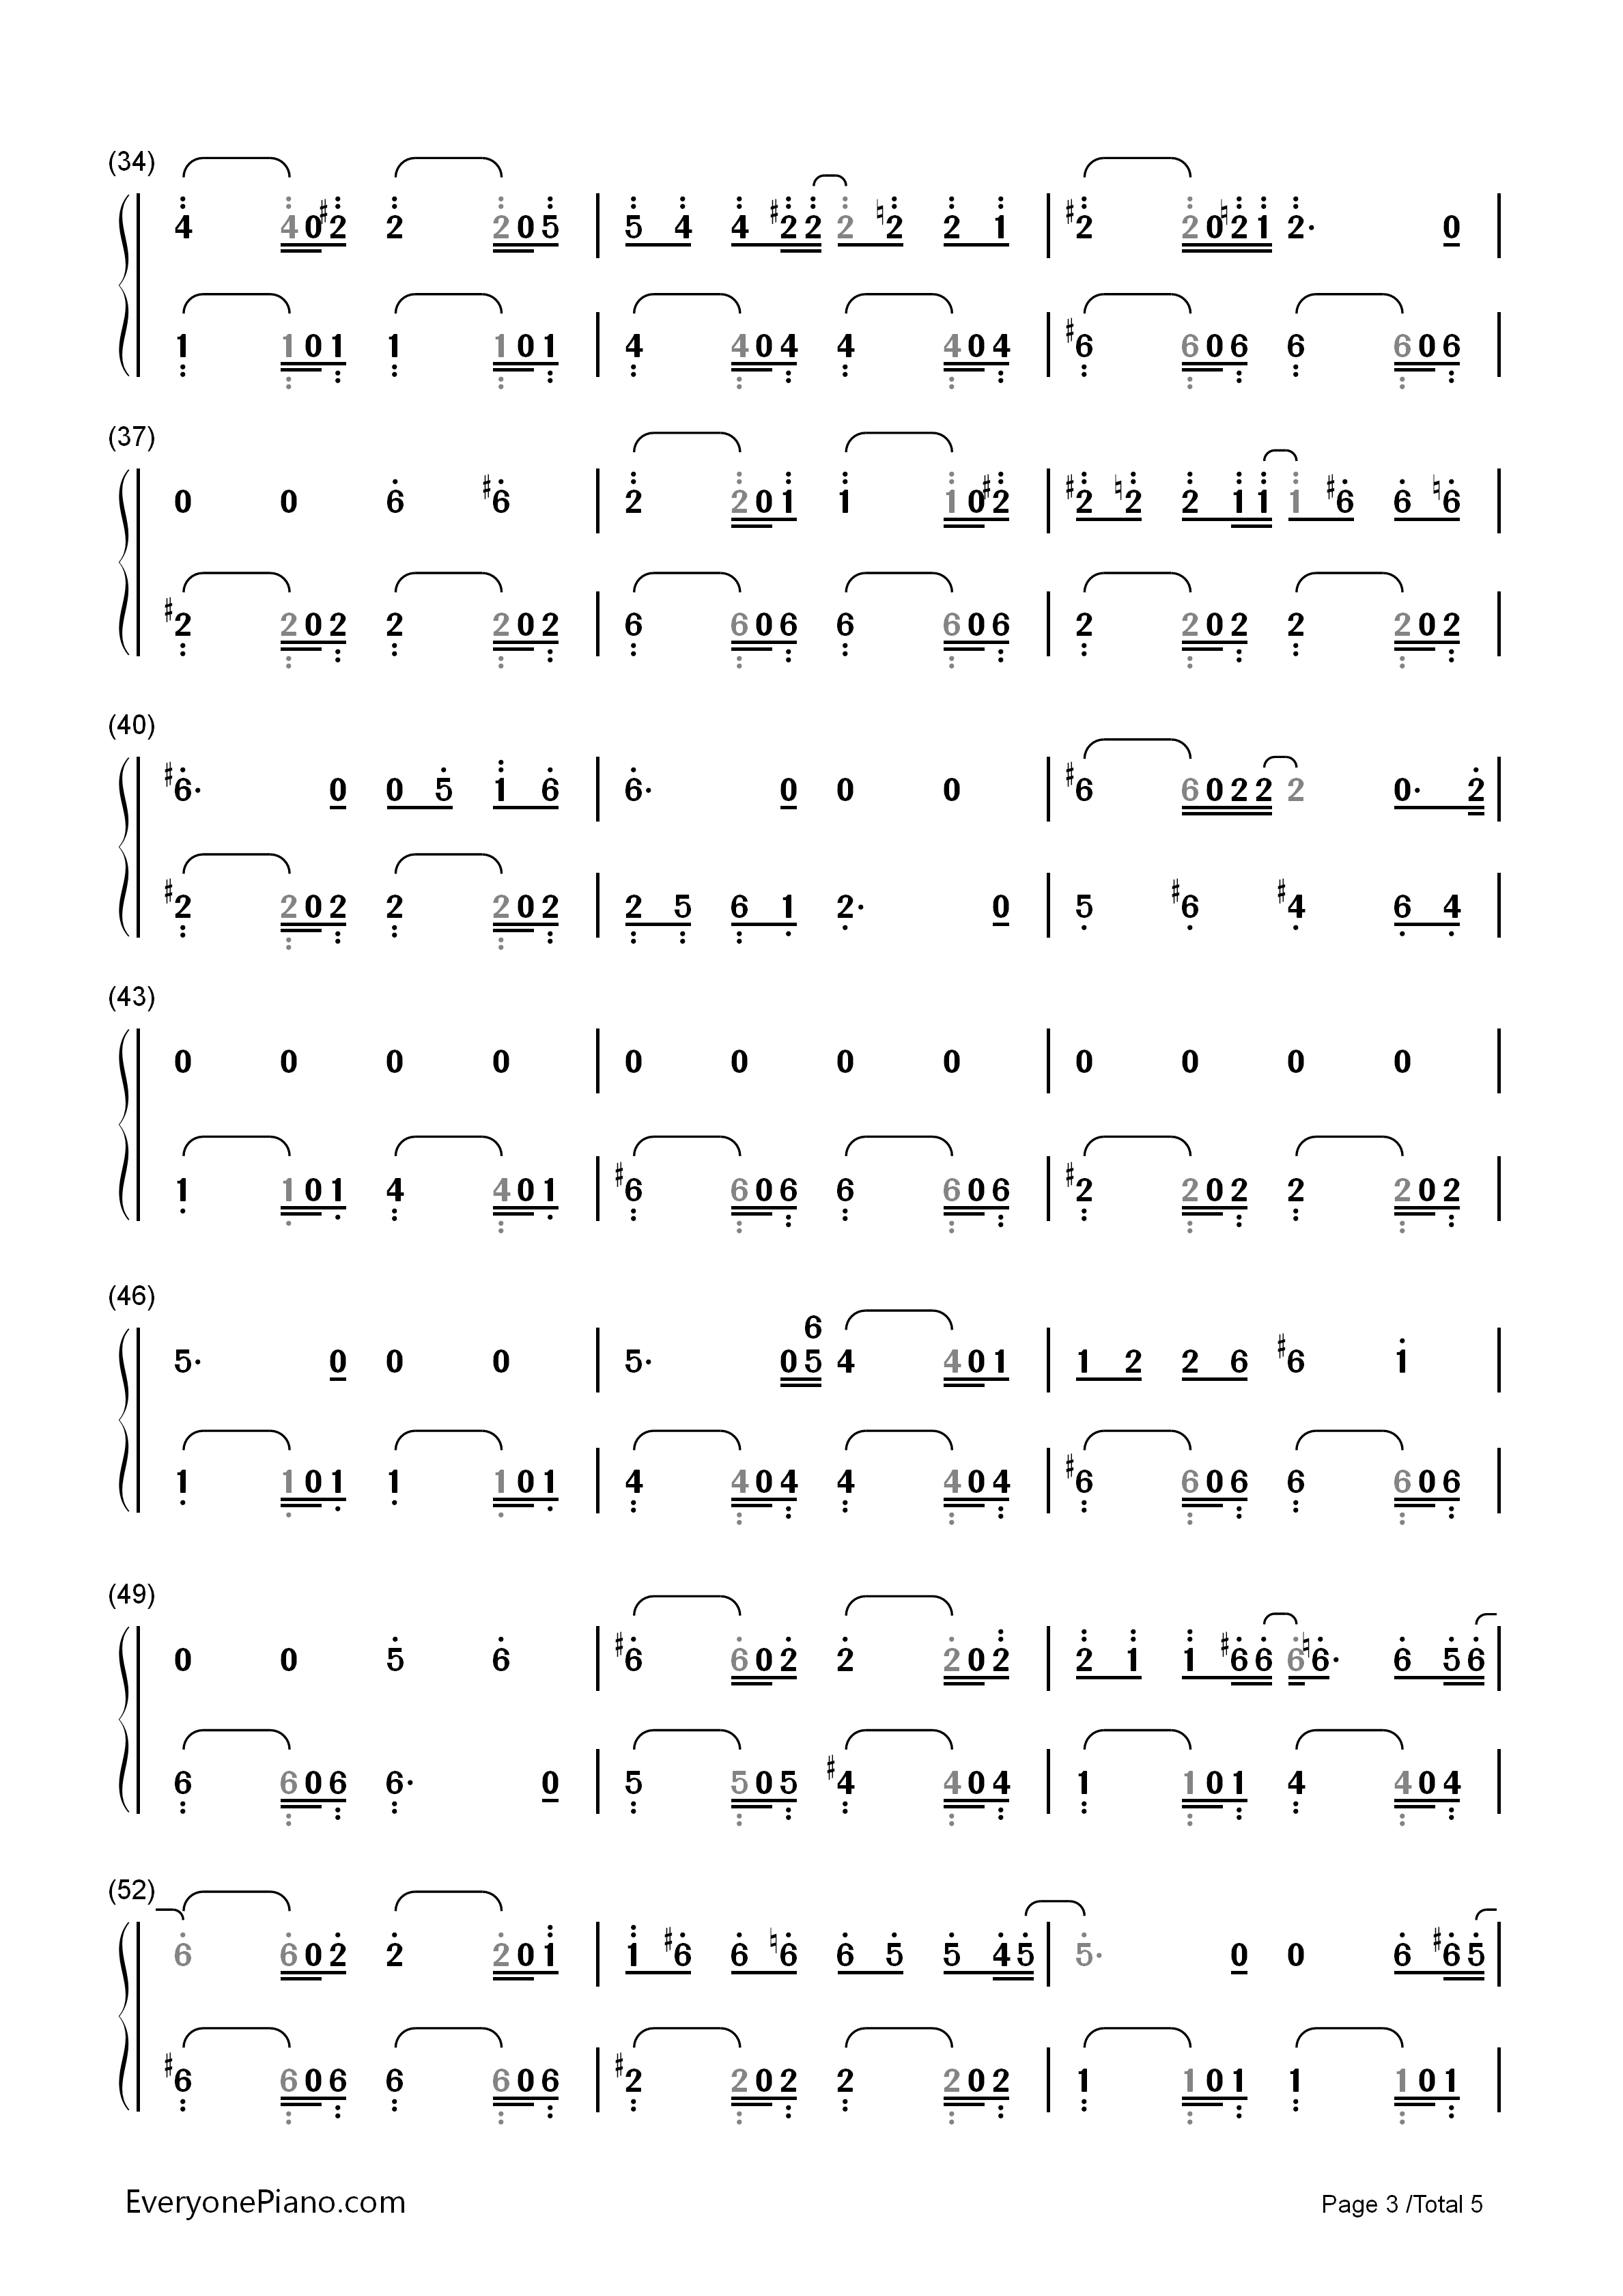 (34)
4 4 0 #2 2 2 0 5 | 5 4 4 #2 2 2 ♮2 2 1 | #2 2 0 ♮2 1 2· 0 |
1 1 0 1 1 1 0 1 | 4 4 0 4 4 4 0 4 | #6 6 0 6 6 6 0 6 |
(37)
0 0 6 #6 | 2 2 0 1 1 1 0 #2 | #2 ♮2 2 1 1 1 #6 6 ♮6 |
#2 2 0 2 2 2 0 2 | 6 6 0 6 6 6 0 6 | 2 2 0 2 2 2 0 2 |
(40)
#6· 0 0 5 1 6 | 6· 0 0 0 | #6 6 0 2 2 2 0· 2 |
#2 2 0 2 2 2 0 2 | 2 5 6 1 2· 0 | 5 #6 #4 6 4 |
(43)
0 0 0 0 | 0 0 0 0 | 0 0 0 0 |
1 1 0 1 4 4 0 1 | #6 6 0 6 6 6 0 6 | #2 2 0 2 2 2 0 2 |
(46)
6
5· 0 0 0 | 5· 0 5 4 4 0 1 | 1 2 2 6 #6 1 |
1 1 0 1 1 1 0 1 | 4 4 0 4 4 4 0 4 | #6 6 0 6 6 6 0 6 |
(49)
0 0 5 6 | #6 6 0 2 2 2 0 2 | 2 1 1 #6 6 6 ♮6· 6 5 6 |
6 6 0 6 6· 0 | 5 5 0 5 #4 4 0 4 | 1 1 0 1 4 4 0 4 |
(52)
6 6 0 2 2 2 0 1 | 1 #6 6 ♮6 6 5 5 4 5 | 5· 0 0 6 #6 5 |
#6 6 0 6 6 6 0 6 | #2 2 0 2 2 2 0 2 | 1 1 0 1 1 1 0 1 |
EveryonePiano.com
Page 3 /Total 5